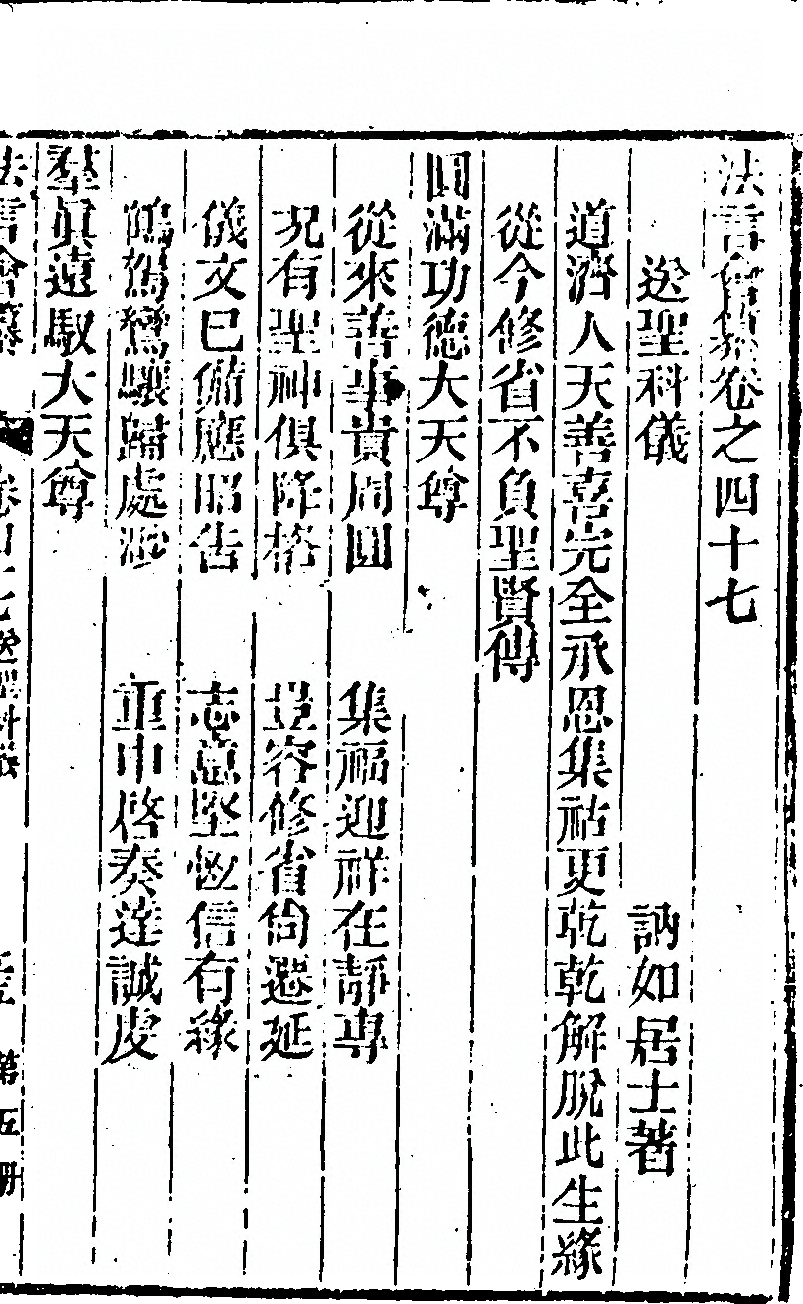 法言會纂卷之四十七
送聖科儀 訥如居士著
道濟人天善喜完全承恩集祜更乾乾解脫此生緣
從今修省不負聖賢傳
圓滿功德大天尊
從來善事貴周圓 集福迎祥在靜專
况有聖神俱降格 豈容修省尙遲延
儀文已備應昭告 志意堅恆信有緣
鶴駕鸞驂歸處渺 重申啓奏達誠虔
羣眞遠馭大天尊
法言會纂 卷四十七 送聖科儀 第五册